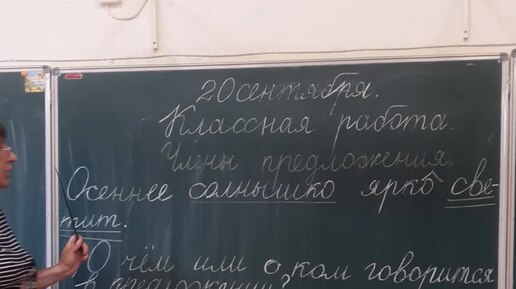 20 сентября.
Классная работа.
Члены предложения.
Осеннее солнышко ярко све-
тит.
О чём или о ком говорится
в предложении?